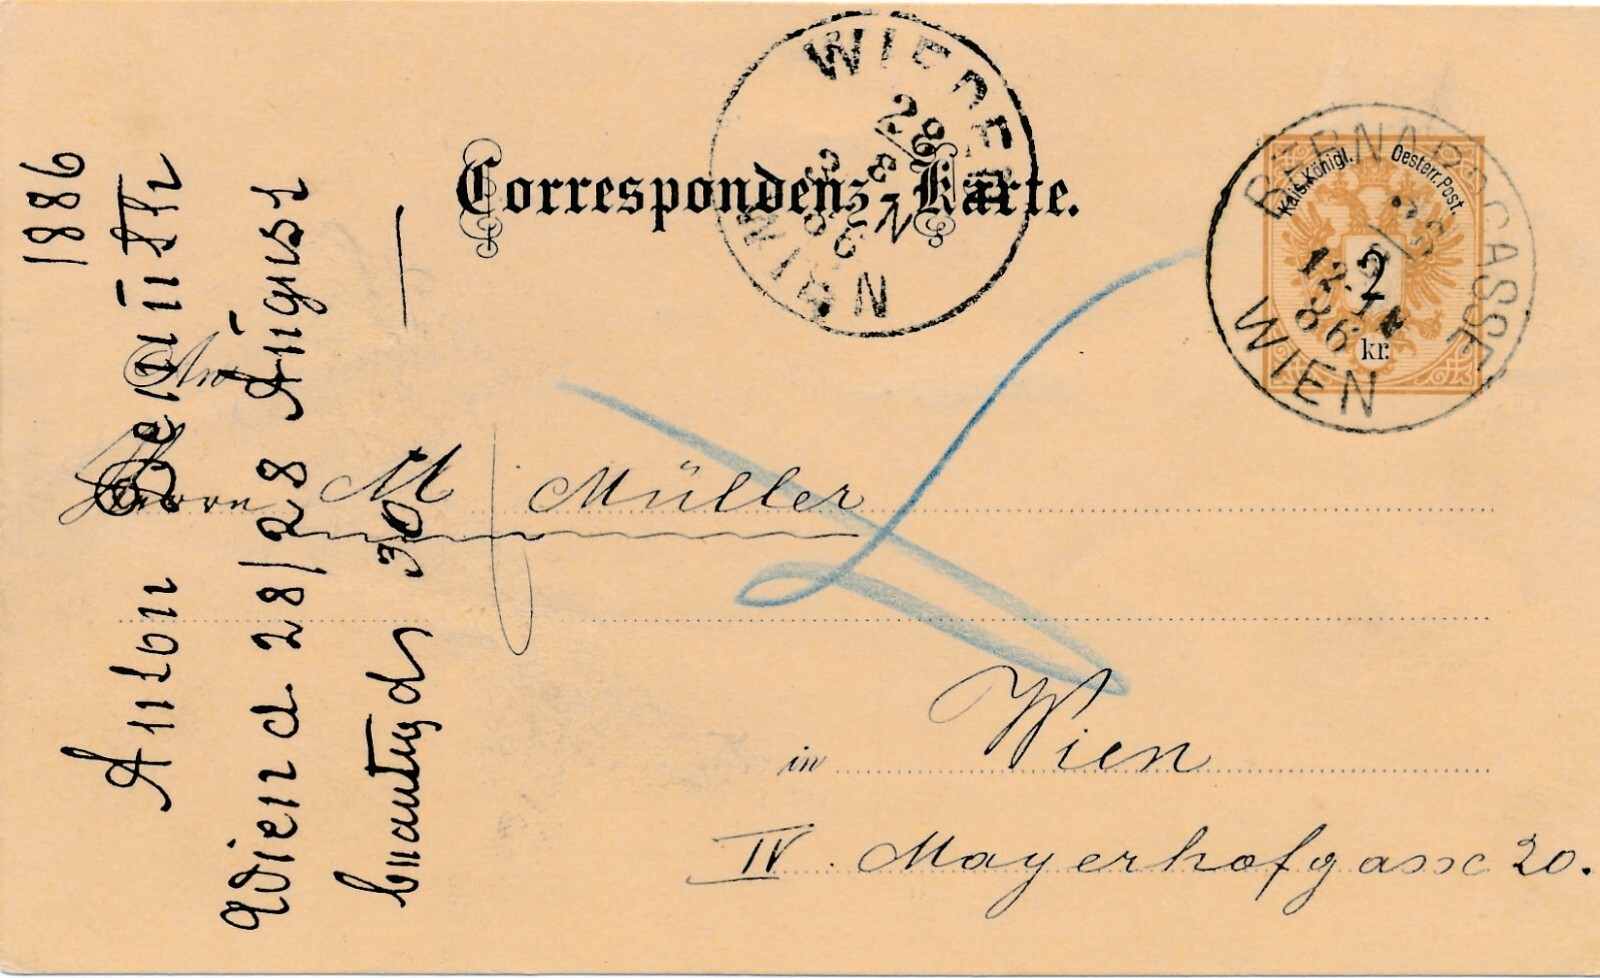 Correspondenz-Karte.
WIEDEN
28
8
3 N
86
WIEN
Kais. Königl. Oesterr. Post.
2
kr.
BERNARDGASSE
28
12
86
WIEN
An
Herrn M Müller
in Wien
IV. Mayerhofgasse 20.
1886
Anton
Wien d. 28/28 August
30